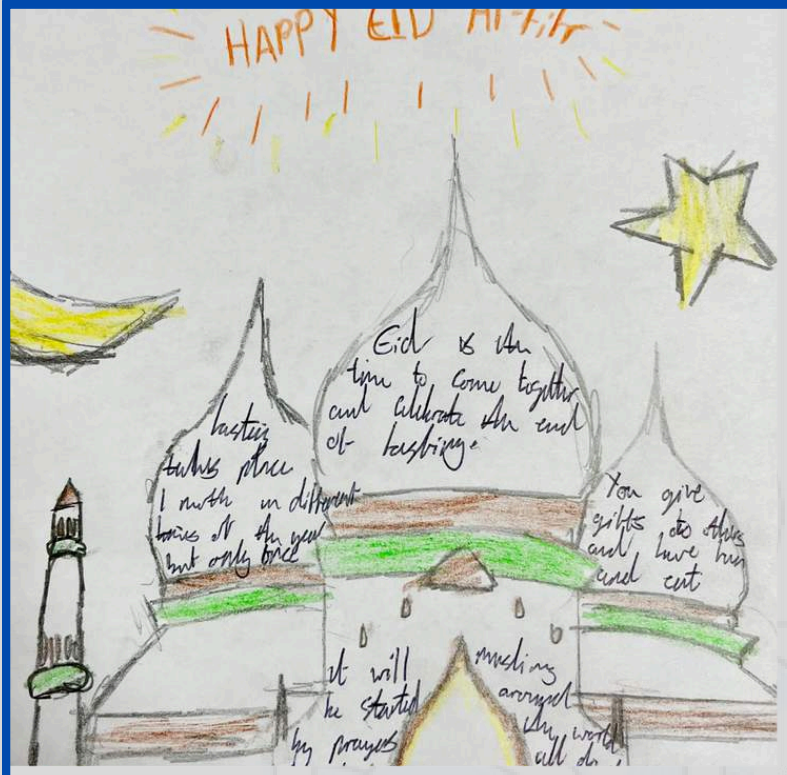 HAPPY EID Al-Fitr
Eid is the
time to come together
and celebrate the end
of fasting.
fasting
takes place
1 month in different
times of the year
but only once
You give
gifts to others
and have fun
and eat
it will
be started
by prayers
muslims
around
the world
all do